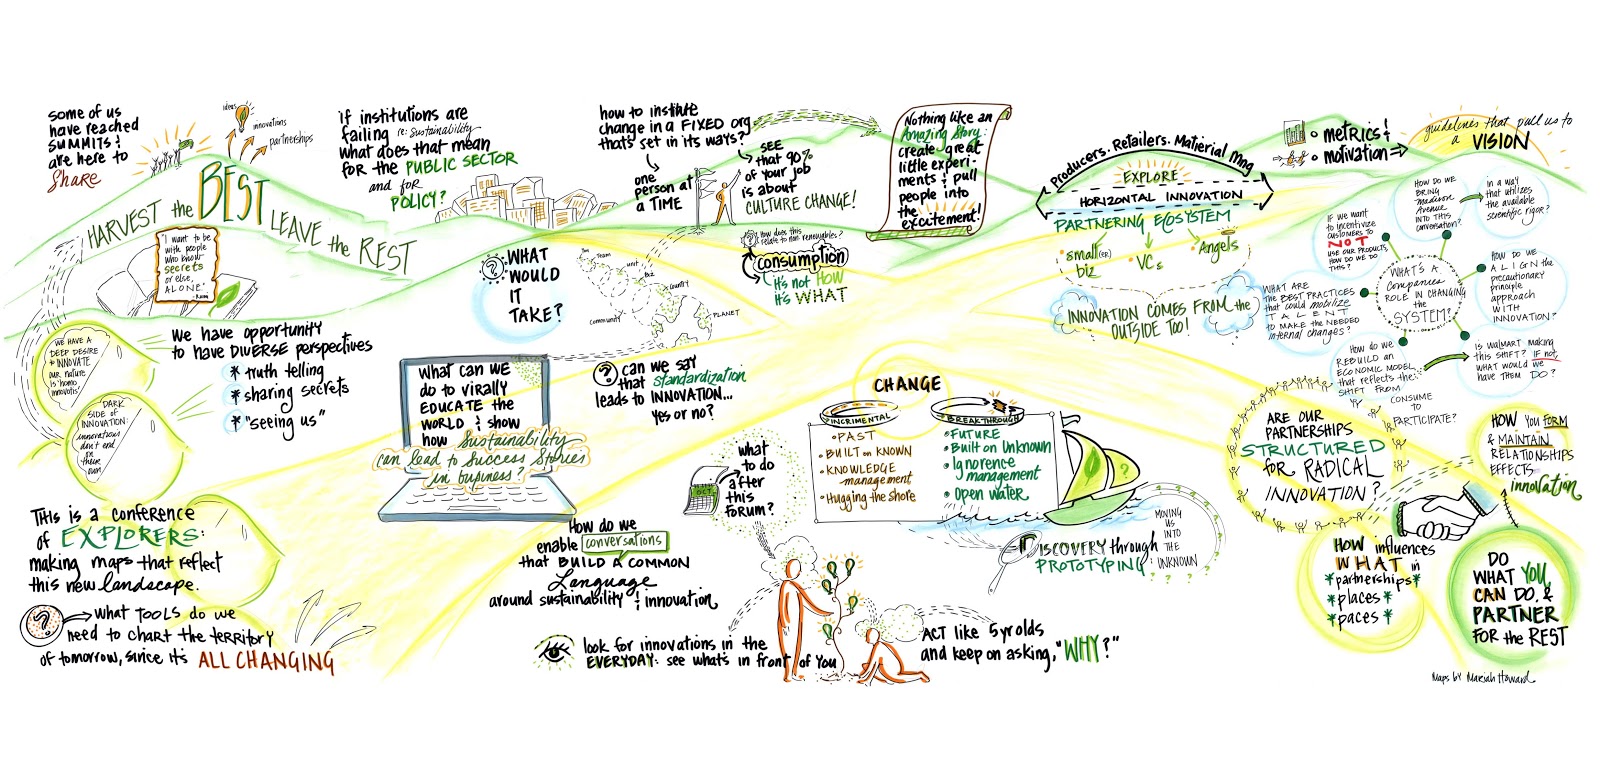 some of us
have reached
SUMMITS &
are here to
Share
ideas
innovations
partnerships
HARVEST the BEST LEAVE the REST
"I want to be
with people
who know
secrets
or else,
ALONE"
if institutions are
failing re: Sustainability
what does that mean
for the PUBLIC SECTOR
and for
POLICY?
how to institute
change in a FIXED org
that's set in its ways?
one
person at
a TIME
SEE
that 90%
of your job
is about
CULTURE CHANGE!
Nothing like an
Amazing Story:
create great
little experi-
ments & pull
people into
the
excitement!
Producers. Retailers. Material Mng
EXPLORE
HORIZONTAL INNOVATION
PARTNERING ECOSYSTEM
small(er)
biz
VCs
Angels
INNOVATION COMES FROM the
OUTSIDE TOO!
metrics &
motivation
guidelines that pull us to
a VISION
HOW DO WE
BRING
Madison
Avenue
INTO THIS
conversation?
in a way
that utilizes
the available
scientific rigor?
IF we want
to incentivize
customers to
NOT
USE OUR PRODUCTS,
HOW DO WE DO
THIS?
WHAT'S A
Companies
ROLE IN CHANGING
the
SYSTEM?
HOW DO WE
ALIGN the
precautionary
principle
approach
WITH
INNOVATION?
WHAT ARE
the BEST PRACTICES
that could mobilize
TALENT
TO MAKE the NEEDED
internal changes?
HOW do WE
REBUILD an
ECONOMIC MODEL
that reflects the
SHIFT FROM
CONSUME
TO
PARTICIPATE?
IS WALMART MAKING
this SHIFT? IF not,
WHAT WOULD WE
have THEM DO?
WHAT
WOULD
IT
TAKE?
Team
unit
Biz
Country
Community
PLANET
How does this
relate to non renewables?
consumption
it's not HOW
it's WHAT
WE HAVE A
DEEP DESIRE
to INNOVATE
our nature
is 'homo
innovatis'
DARK
SIDE OF
INNOVATION:
innovations
don't end
on
their
own
we have opportunity
to have DIVERSE perspectives
* truth telling
* sharing secrets
* "seeing us"
what can WE
do to virally
EDUCATE the
WORLD & show
how Sustainability
can lead to Success Stories
in business?
? can we say
that standardization
leads to INNOVATION...
yes or no?
CHANGE
INCRIMENTAL
• PAST
• BUILT on KNOWN
• KNOWLEDGE
management
• Hugging the shore
BREAKTHROUGH
• FUTURE
• Built on Unknown
• Ignorence
management
• open water
?
what
to do
after
this
forum?
OCT
MOVING
US
INTO
THE
UNKNOWN
DISCOVERY through
PROTOTYPING
ARE OUR
PARTNERSHIPS
STRUCTURED
for RADICAL
INNOVATION?
HOW YOU FORM
& MAINTAIN
RELATIONSHIPS
EFFECTS
innovation
This is a conference
of EXPLORERS:
making maps that reflect
this new landscape.
? what TOOLS do we
need to chart the territory
of tomorrow, since it's ALL CHANGING
How do we
enable conversations
that BUILD A COMMON
Language
around sustainability & innovation
look for innovations in the
EVERYDAY: see what's in front of you
ACT like 5 yr olds
and keep on asking, "WHY?"
HOW influences
WHAT in
* partnerships *
* places *
* paces *
DO
WHAT YOU
CAN DO, &
PARTNER
FOR the REST
Maps by Mariah Howard